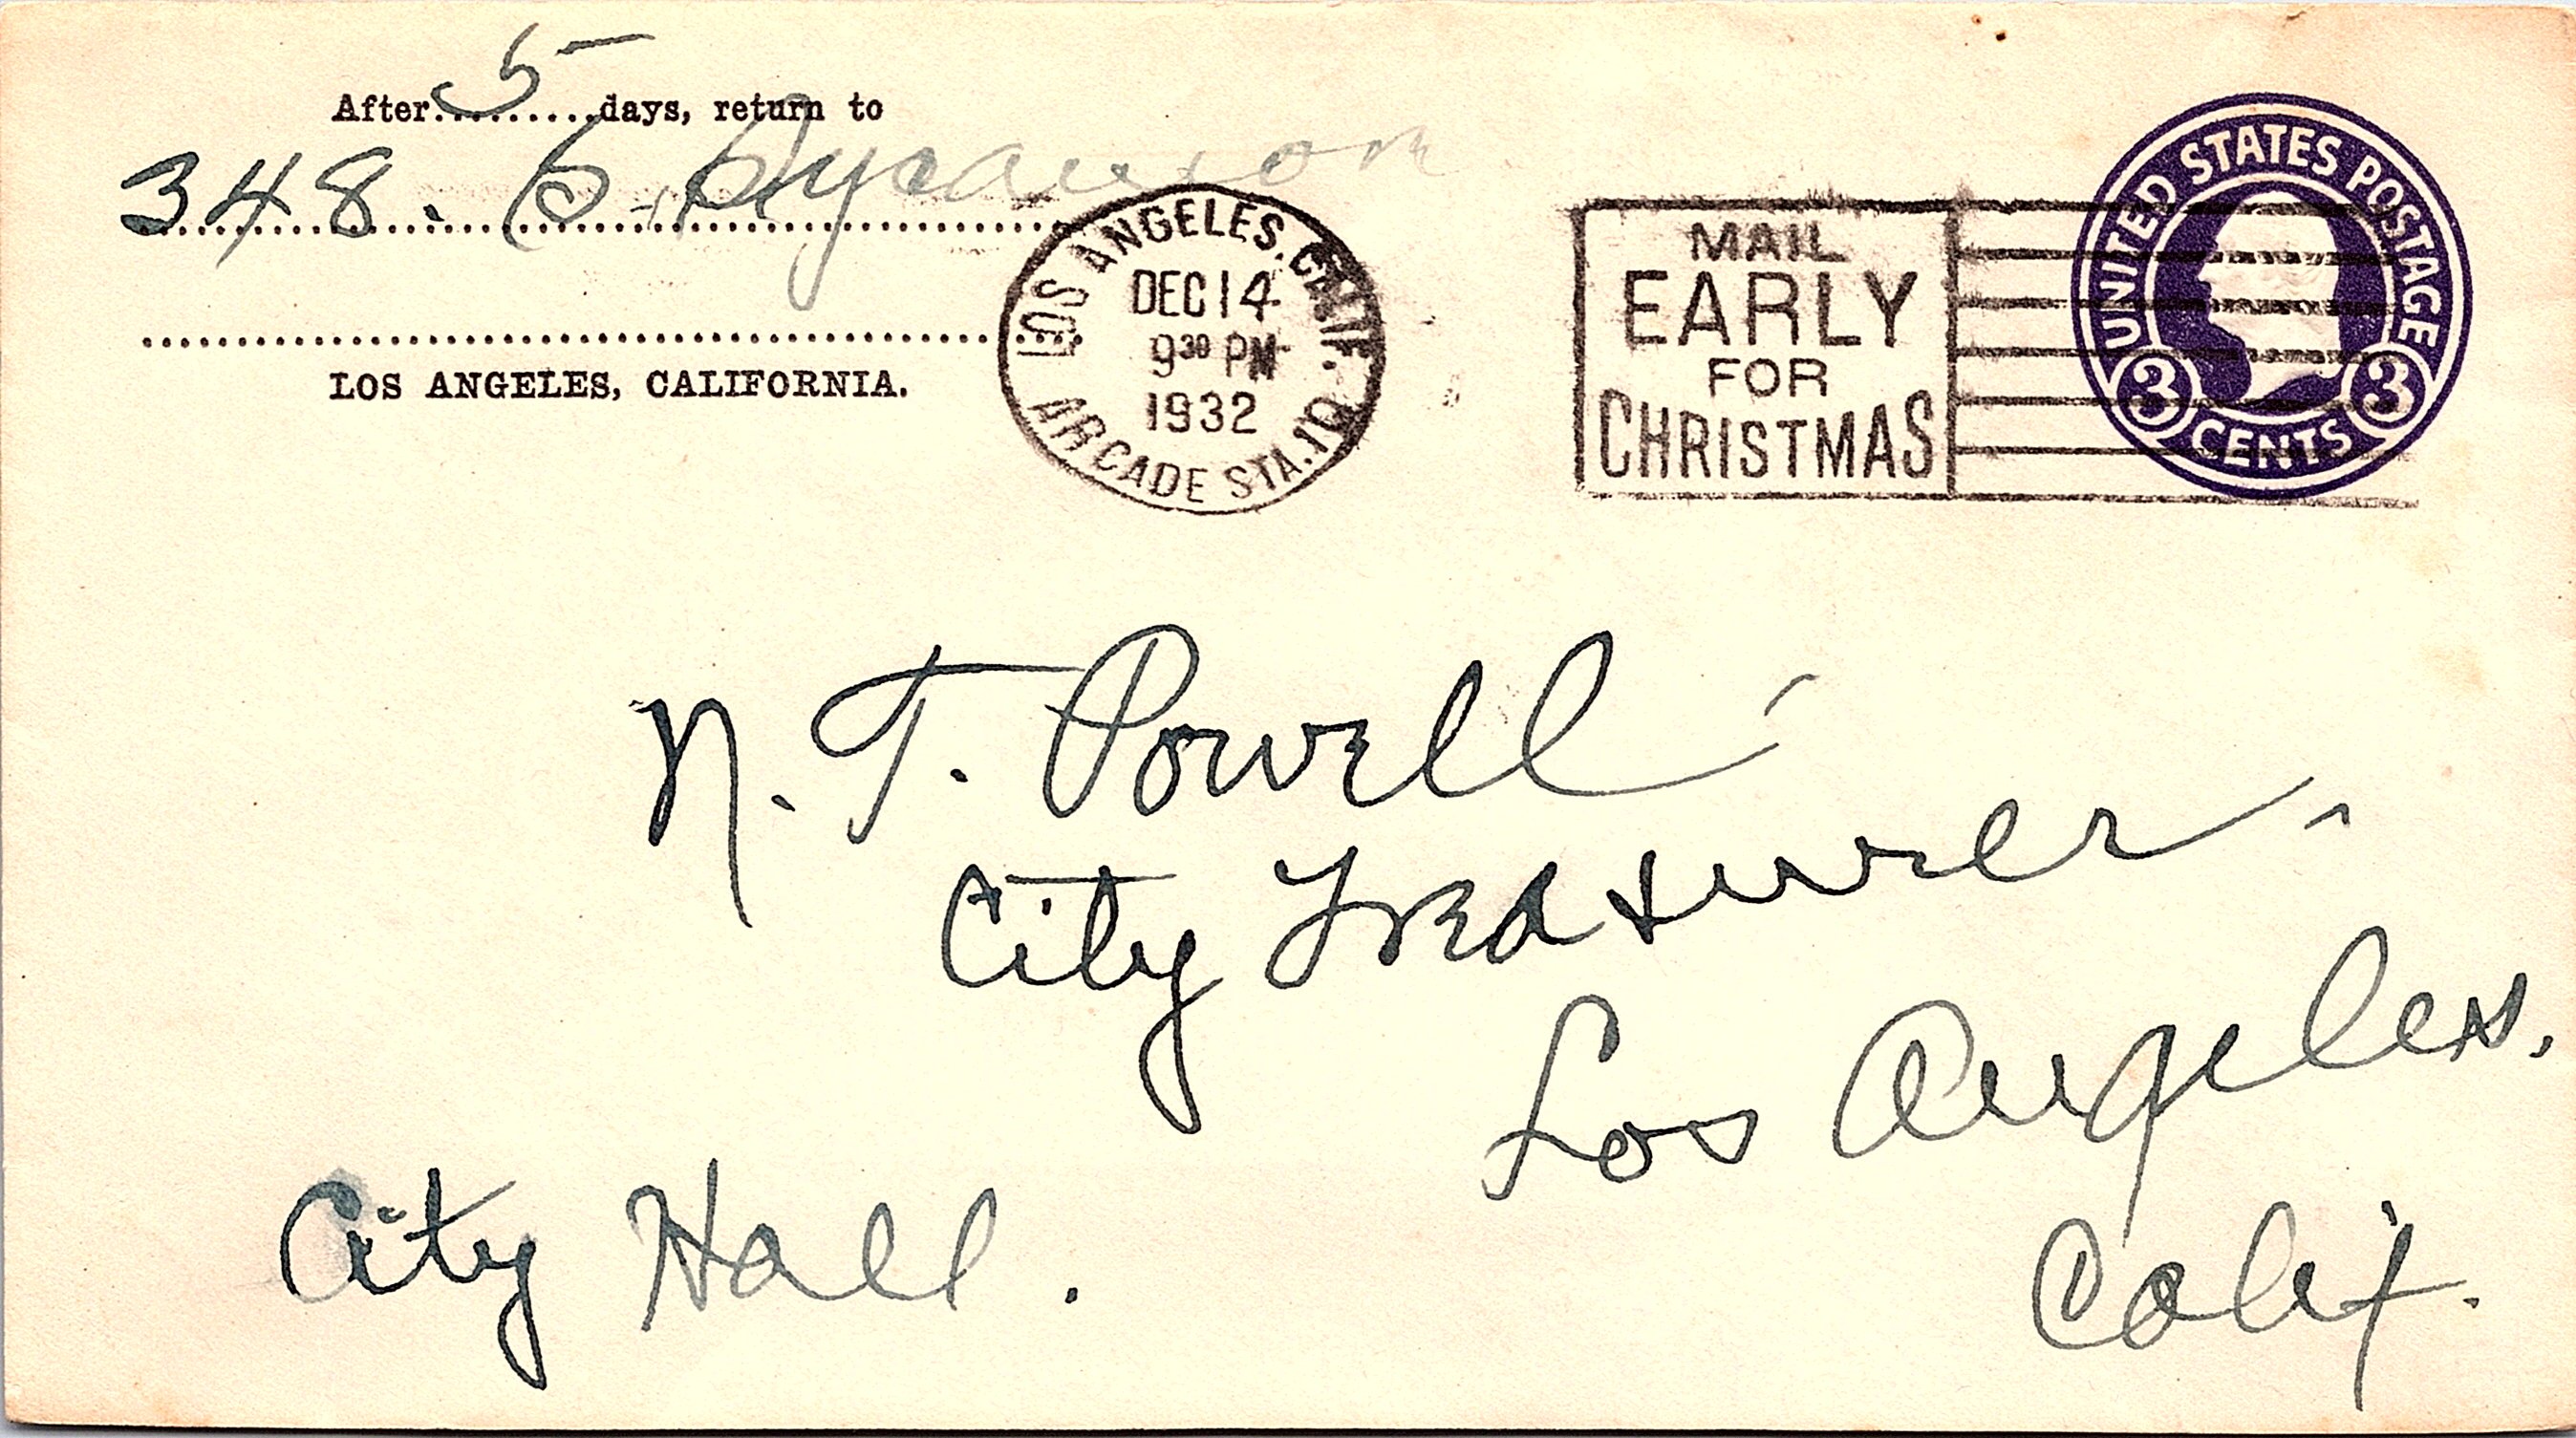 After 5 days, return to
348. S. Sycamore
LOS ANGELES, CALIFORNIA.
LOS ANGELES, CALIF.
DEC 14
9 30 PM
1932
ARCADE STA. 10
MAIL
EARLY
FOR
CHRISTMAS
UNITED STATES POSTAGE
3 CENTS 3
N. T. Powell
City Treasurer
Los Angeles,
Calif.
City Hall.